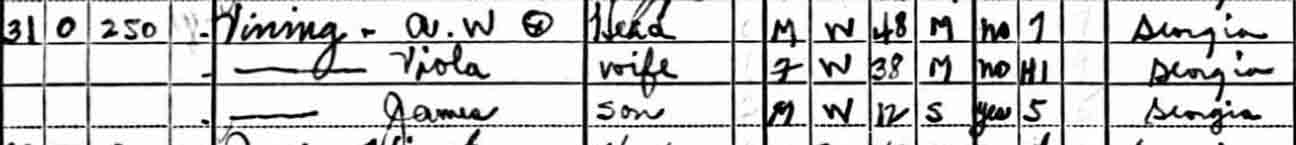 31 0 250 Vining - A. W ⊗ Head M W 48 M no 7 Georgia
—— Viola wife F W 38 M no H1 Georgia
—— James son M W 12 S yes 5 Georgia